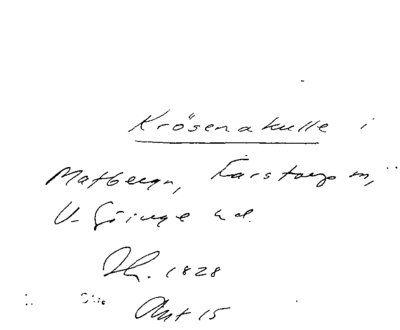 Krösenakulle i
Matbergn, Farstorp sn,
V. Göinge hd.
Th. 1828
Ant 15